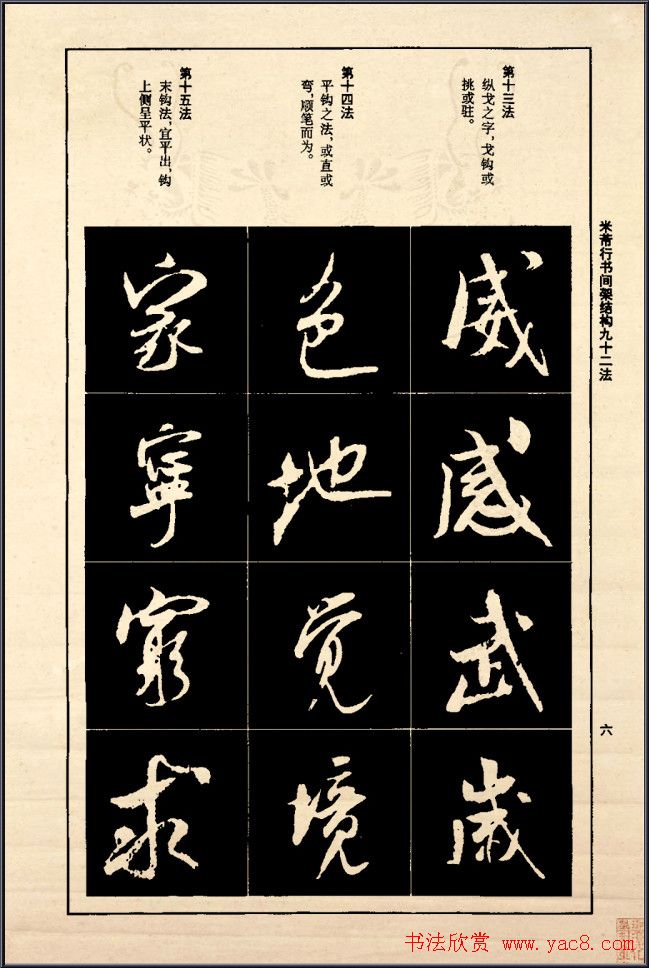 米芾行书间架结构九十二法
第十三法
纵戈之字，戈钩或
挑或驻。
威
感
武
歲
第十四法
平钩之法，或直或
弯，顺笔而为。
色
地
覚
境
第十五法
末钩法，宜平出，钩
上侧呈平状。
家
寧
窮
求
六
书法欣赏 www.yac8.com